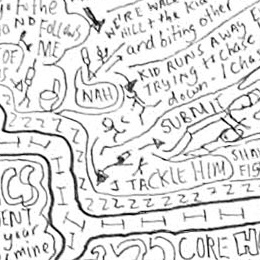 to the
AND FOLLOWS
ME
OF
WE'RE WALK
HILL + the Kid
and biting other
NAH
KID RUNS AWAY
Trying + chase
down. I cha
SUBMIT
I TACKLE HIM
Z Z Z Z Z Z
CS
MENT
your
mine
CORE